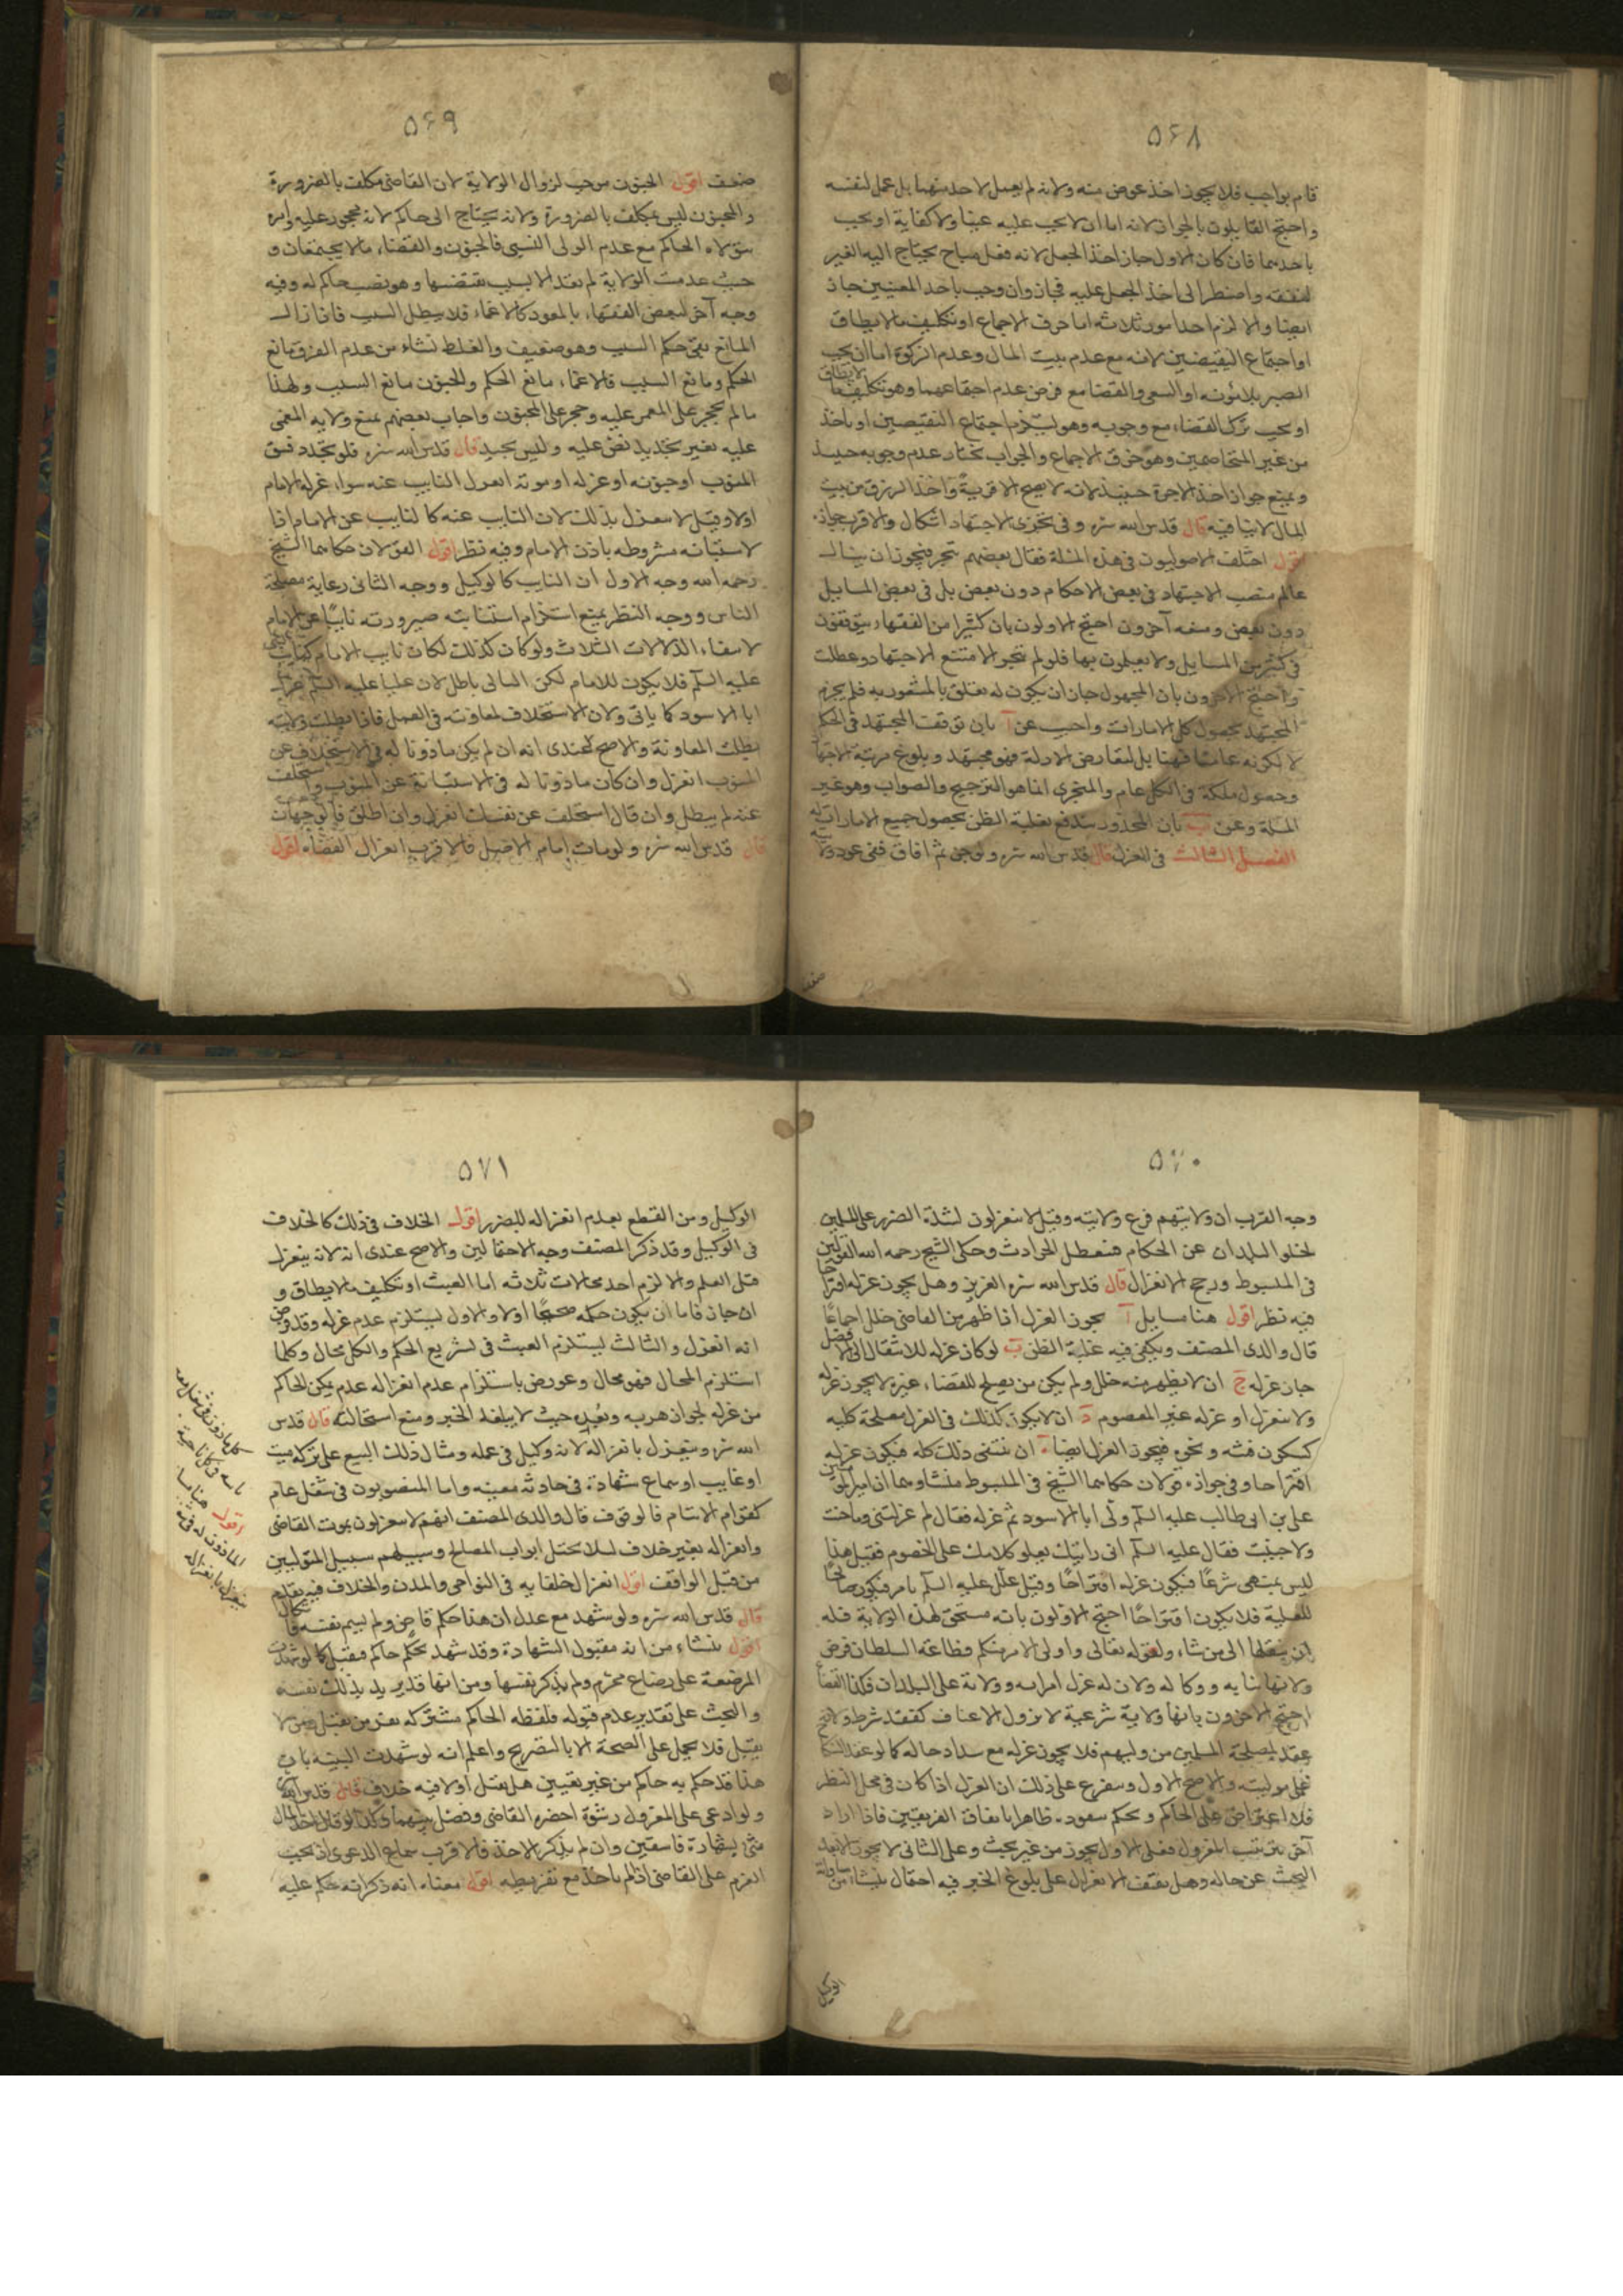 ۵۶۸
قام بواجب فلا يجوز اخذ عوض منه ولانه لم يعمل لاحد منهما بل عمل لنفسه
واحتج القايلون بالجواز لانه اما ان لا يجب عليه عينا ولا كفاية او يجب
باحدهما فان كان الاول جاز اخذ الجعل لانه فعل مباح يحتاج اليه الغير
لنفقته واضطر الى اخذ الجعل عليه فجاز وان وجب باحد المعنيين جاز
ايضا والا لزم احد امور ثلاثه اما خرق الاجماع او تكليف ما لا يطاق
او اجتماع النقيضين لانه مع عدم بيت المال وعدم الزكوة اما ان يجب
الصبر بلا مؤنه او السعى والقضا مع فرض عدم اجتماعهما وهو تكليف ما لا يطاق
او يجب ترك القضاء مع وجوبه وهو يستلزم اجتماع النقيضين او ياخذ
من غير المتخاصمين وهو خرق الاجماع والجواب نختار عدم وجوبه حينئذ
ويمنع جواز اخذ الاجرة حينئذ لانه لا يصح الا قربة واخذ الرزق من بيت
المال لا ينافيه قال قدس الله سره وفى تجزى الاجتهاد اشكال والاقرب جوازه
اقول اختلف الاصوليون فى هذه المسئلة فقال بعضهم تتجزى فيجوز ان ينال
عالم منصب الاجتهاد فى بعض الاحكام دون بعض بل فى بعض المسايل
دون بعض ومنعه آخرون احتج الاولون بان كثيرا من الفقهاء يتوقفون
فى كثير من المسايل ولا يعملون بها فلو لم تتجز لامتنع الاجتهاد وعطلت
واحتج الاخرون بان المجهول جاز ان يكون له تعلق بالمشعور به فلم يجزم
المجتهد بحصول كل الامارات واجيب عن آ بان توقف المجتهد فى الحكم
لا لكونه عاميا فيها بل لتعارض الادلة فهو مجتهد وبلوغ مرتبة الاجتهاد
وحصول ملكة فى الكل عام والمتجزى انما هو الترجيح والصواب وهو غير
المسئلة وعن ب بان المحذور يندفع بغلبة الظن بحصول جميع الامارات له
الفصل الثالث فى العزل قال قدس الله سره ولو جن ثم افاق ففى عود ولايته
۵۶۹
ضعف اقول الجنون موجب لزوال الولاية لان القاضى مكلف بالضرورة
والمجنون ليس بمكلف بالضرورة ولانه يحتاج الى حاكم لانه محجور عليه وامره
يتولاه الحاكم مع عدم الولى النسبى فالجنون والقضاء مما لا يجتمعان و
حيث عدمت الولاية لم تعد الا بسبب يقتضيها وهو نصب حاكم له وفيه
وجه آخر لبعض الفقهاء بالعود كالاغماء فلا يبطل السبب فاذا زال
المانع بقى حكم السبب وهو ضعيف والغلط نشاء من عدم الفرق مانع
الحكم ومانع السبب فالاغماء مانع الحكم والجنون مانع السبب ولهذا
ما لم يحجر على المغمى عليه وحجر على المجنون واجاب بعضهم بمنع ولايه المغمى
عليه بغير تجديد نص عليه وليس بجيد قال قدس الله سره فلو تجدد فسق
المنوب او جنونه او عزله او موته انعزل النايب عنه سواء عزله الامام
اولا وقيل لا ينعزل بذلك لان النايب عنه كالنايب عن الامام اذا
لاستنابته مشروطه باذن الامام وفيه نظر اقول القولان حكاهما الشيخ
رحمه الله وجه الاول ان النايب كالوكيل ووجه الثانى رعاية مصلحة
الناس ووجه النظر بمنع استلزام استنابته صيرورته نايبا عن الامام
لانتفاء الدلالات الثلاث ولو كان كذلك لكان نايب الامام كنايب النبى
عليه السلم فلا يكون للامام لكن التالى باطل لان عليا عليه السلم عزل
ابا الاسود كما ياتى ولان الاستخلاف لمعاونته فى العمل فاذا بطلت ولايته
بطلت المعاونة والاصح عندى انه ان لم يكن ماذونا له فى الاستخلاف عن
المنوب انعزل وان كان ماذونا له فى الاستنابة عن المنوب واستخلف
عنه لم يبطل وان قال استخلف عن نفسك انعزل وان اطلق فالوجهان
قال قدس الله سره ولو مات امام الاصل فالاقرب انعزال القضاه اقول
۵۷۰
وجه القرب ان ولايتهم فرع ولايته وقيل لا ينعزلون لشدة الضرر على المسلمين
لخلو البلدان عن الحكام فتعطل الحوادث وحكى الشيخ رحمه الله القولين
فى المبسوط ورجح الانعزال قال قدس الله سره العزيز وهل يجوز عزله اقتراحا
فيه نظر اقول هنا مسايل آ يجوز العزل اذا ظهر من القاضى خلل اجماعا
قال والدى المصنف ويكفى فيه غلبة الظن ب لو كان عزله للانتقال الى الافضل
جاز عزله ج ان لا يظهر منه خلل ولم يكن من يصلح للقضاء غيره لا يجوز عزله
ولا ينعزل لو عزله غير المعصوم د ان لا يكون كذلك فى العزل مصلحة كليه
كسكون فتنه ونحوه فيجوز العزل ايضا ه ان ينتفى ذلك كله فيكون عزله
اقتراحا وفى جوازه قولان حكاهما الشيخ فى المبسوط منشاوهما ان امير المؤمنين
على بن ابى طالب عليه السلم ولى ابا الاسود ثم عزله فقال لم عزلتنى وما خنت
ولا جنيت فقال عليه السلم انى رايتك يعلو كلامك على الخصوم فقيل هذا
ليس بمنهى شرعا فيكون عزله اقتراحا وقيل علل عليه السلم بامر فيكون صالحا
للعلية فلا يكون اقتراحا احتج الاولون بانه مستحق لهذه الولاية فله
ان ينقلها الى من شاء ولقوله تعالى واولى الامر منكم فطاعة السلطان فرض
ولانها نيابه ووكاله ولان له عزل امرائه وولاتة على البلدان فكذا القضاة
احتج الاخرون بانها ولاية شرعية لا تزول الا عن
عقد لمصلحة المسلمين من وليهم فلا يجوز عزله مع سداد حاله كما لو عقد النكاح
على موليته والاصح الاول ويتفرع على ذلك ان العزل اذا كان فى محل النظر
فلا اعتراض على الحاكم ويحكم بنفوذه ظاهرا باتفاق الفريقين فاذا اراد
آخر يترتب المعزول فعلى الاول يجوز من غير بحث وعلى الثانى لا يجوز الا بعد
البحث عن حاله وهل يقف الانعزال على بلوغ الخبر فيه احتمال ينشاء من مساواة
الوكيل
۵۷۱
الوكيل ومن القطع بعدم انعزاله للضرر اقول الخلاف فى ذلك كالخلاف
فى الوكيل وقد ذكر المصنف وجه الاحتمالين والاصح عندى انه لا ينعزل
قبل العلم والا لزم احد محالات ثلاثه اما العبث او تكليف ما لا يطاق و
ان جاز فاما ان يكون حكمه صحيحا اولا والاول يستلزم عدم عزله وقد فرض
انه انعزل والثالث يستلزم العبث فى تشريع الحكم والكل محال وكلما
استلزم المحال فهو محال وعورض باستلزام عدم انعزاله عدم تمكن الحاكم
من عزله لجواز هربه وبعده حيث لا يبلغه الخبر ومنع استحالته قال قدس
الله سره وينعزل بانعزاله لانه وكيل فى عمله ومثال ذلك البيع على تركه ميت
او غايب او سماع شهادة فى حادثه معينه واما المنصوبون فى شغل عام
كقوام الايتام فالوقوف قال والدى المصنف انهم لا ينعزلون بموت القاضى
وانعزاله بغير خلاف لئلا يختل ابواب المصالح وسبيلهم سبيل المتولين
من قبل الواقف اقول انعزال خلفايه فى النواحى والمدن والخلاف فيه تقدم
قال قدس الله سره ولو شهد مع عدل ان هذا حكم قاض ولم يسم نفسه فاشكال
اقول ينشاء من انه مقبول الشهادة وقد شهد بحكم حاكم فيقبل كما لو شهدت
المرضعة على رضاع محرم ولم يذكر نفسها ومن انها قد يريد بذلك نفسه
والبحث على تقدير عدم قبوله فلفظه الحاكم مشتركه بين من يقبل ومن لا
يقبل فلا يحمل على الصحة الا بالتصريح واعلم انه لو شهدت البينه بان
هذا قد حكم به حاكم من غير تعيين هل يقبل اولا فيه خلاف قال قدس الله سره
ولو ادعى على المعزول رشوة احضره القاضى وفصل بينهما وكذا لو قال اخذ المال
منى بشهادة فاسقين وان لم يذكر الاخذ فالاقرب سماع الدعوى اذ يجب
الغرم على القاضى اذا لم ياخذ مع تفريطه اقول معناه انه ذكر انه حكم عليه